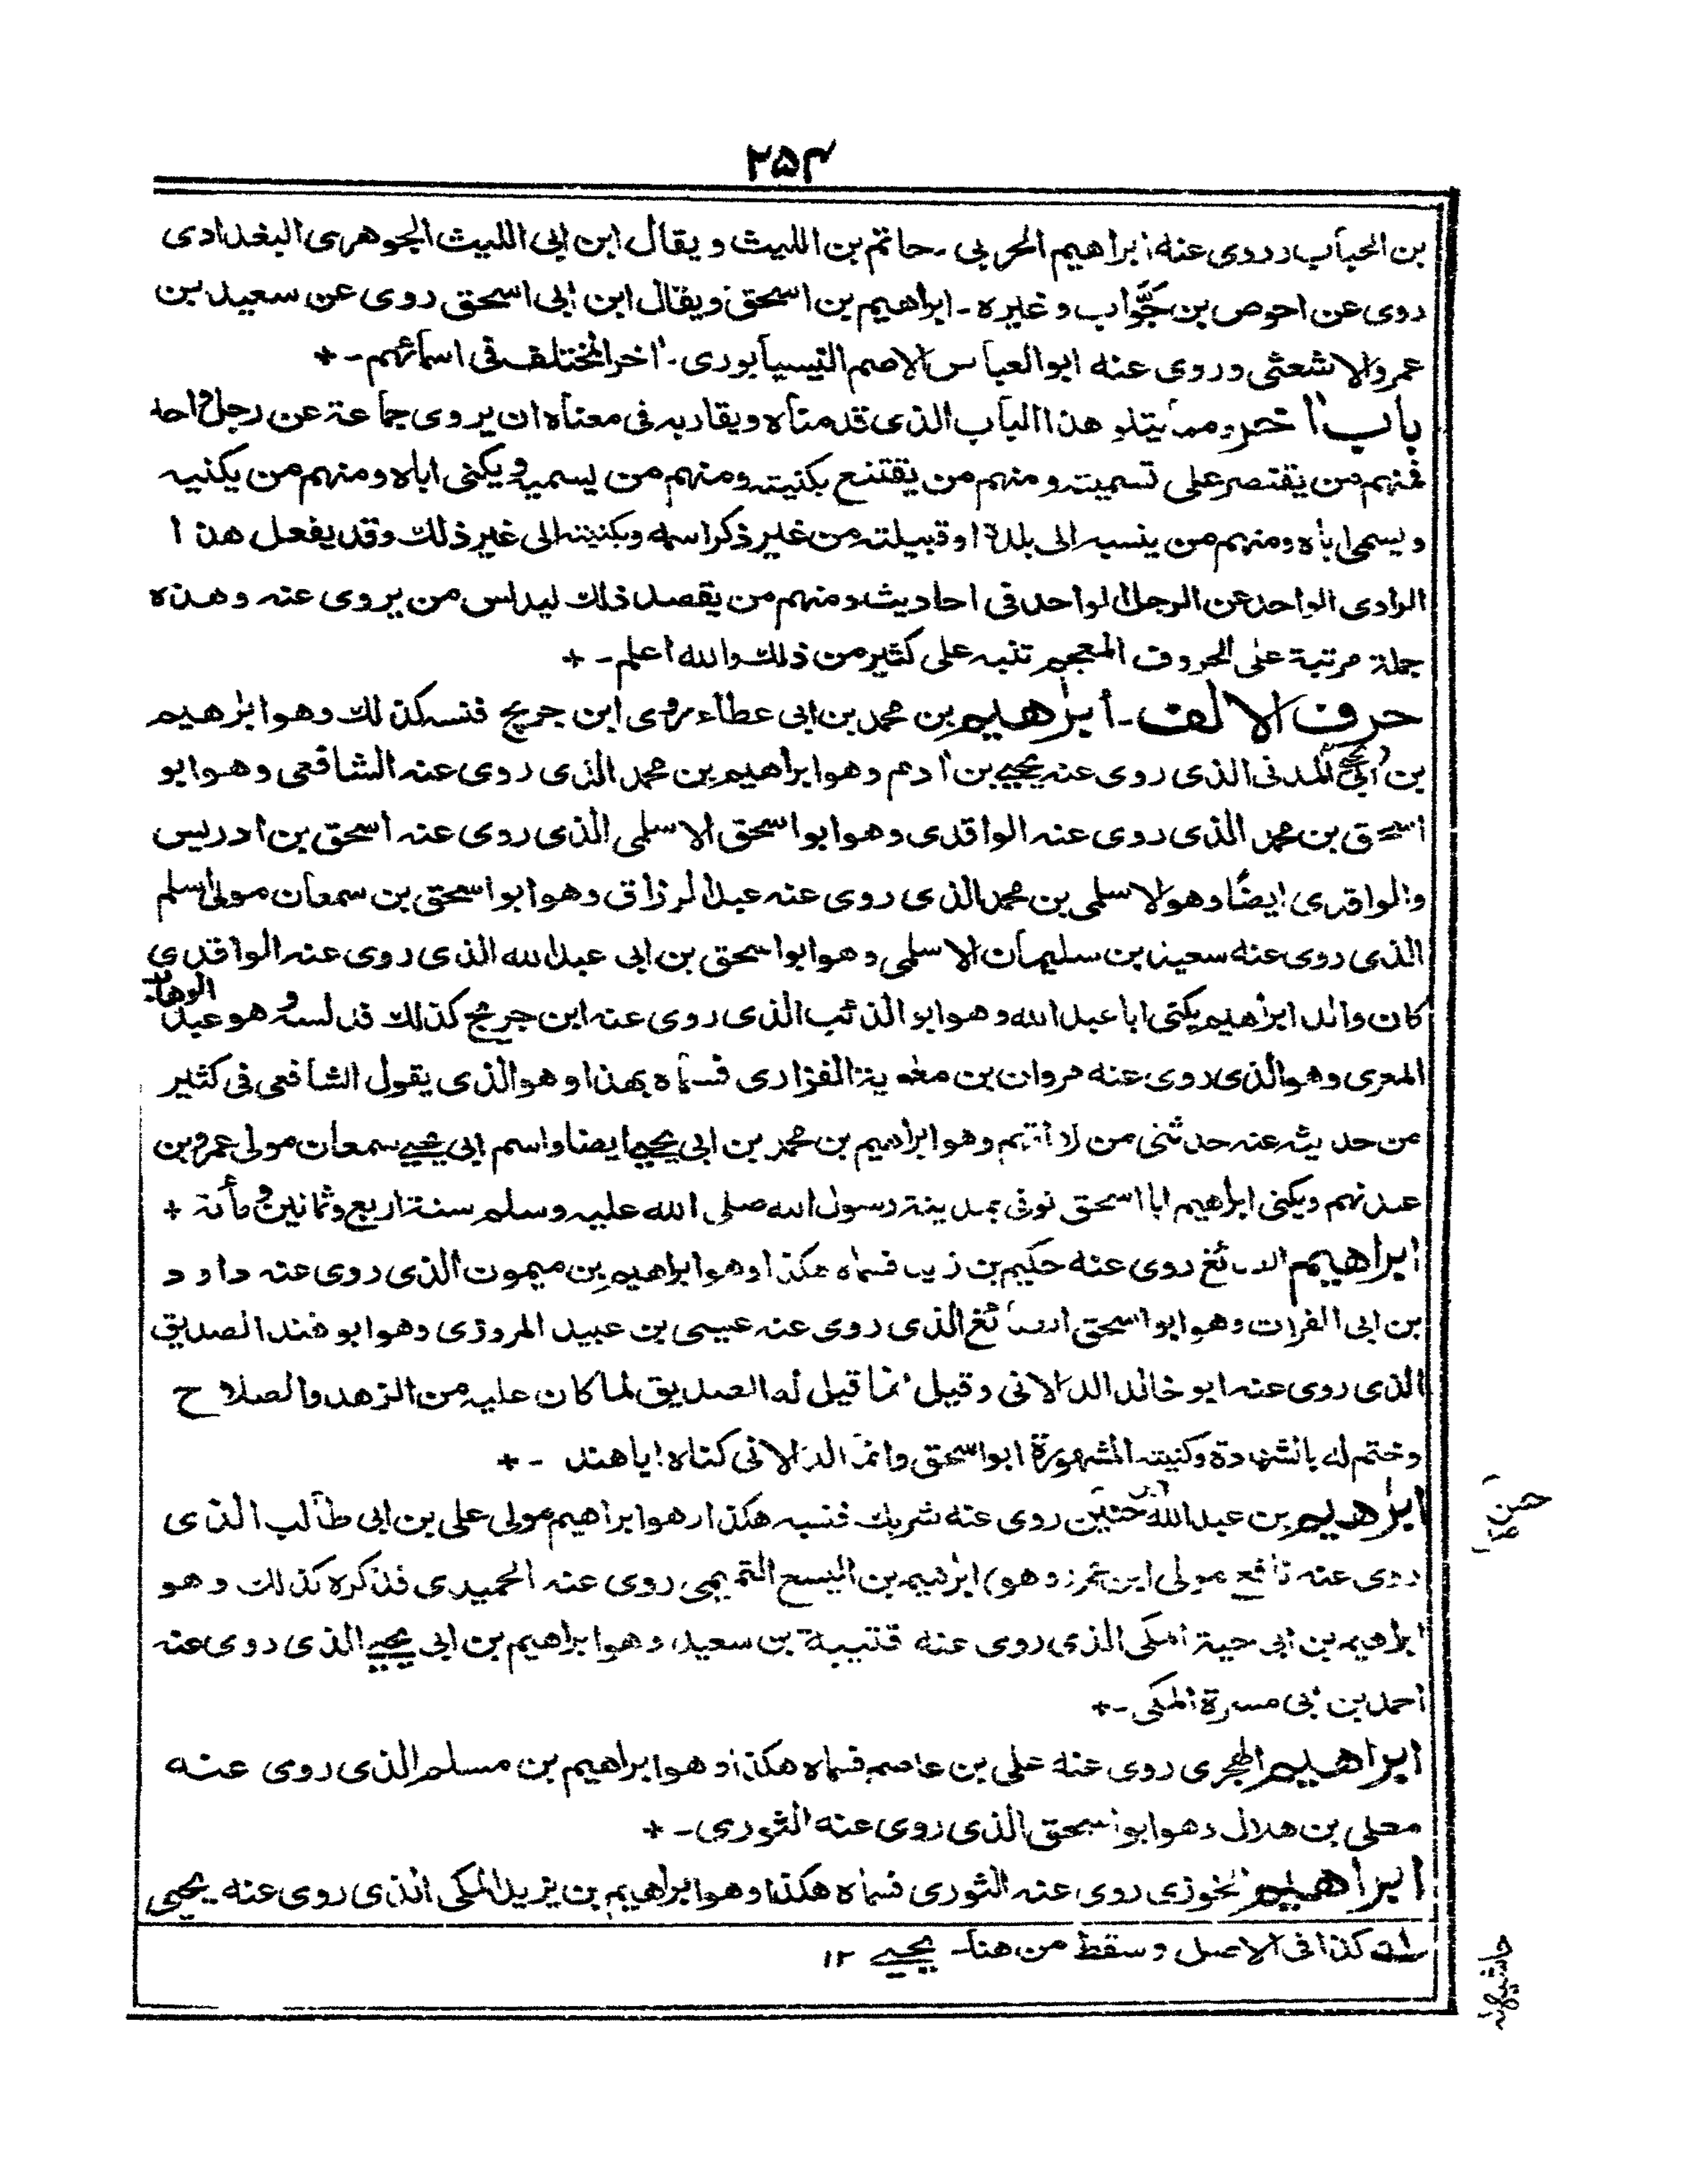 ۲۵۴
بن الحباب وروى عنه ابراهيم الحربي - حاتم بن الليث ويقال ابن ابى الليث الجوهرى البغدادى
روى عن احوص بن جوَّاب وغيره - ابراهيم بن اسحق ويقال ابن ابى اسحق روى عن سعيد بن
عمرو الاشعثى وروى عنه ابو العباس الاصم النيسابورى - اخر المختلف فى اسمائهم - +
باب اخر مما يتلو هذا الباب الذى قدمناه ويقاربه فى معناه ان يروى جماعة عن رجل واحد
فمنهم من يقتصر على تسميته ومنهم من يقتنع بكنيته ومنهم من يسميه ويكنى اباه ومنهم من يكنيه
ويسمى اباه ومنهم من ينسبه الى بلدة او قبيلته من غير ذكر اسمه وبكنيته الى غير ذلك وقد يفعل هذا
الراوى الواحد عن الرجل الواحد فى احاديث ومنهم من يقصد ذلك ليدلس من يروى عنه وهذه
جملة مرتبة على الحروف المعجم تنبه على كثير من ذلك والله اعلم - +
حرف الالف - ابراهيم بن محمد بن ابى عطاء روى ابن جريج فنسبه كذلك وهو ابراهيم
بن ابى يحيى المدنى الذى روى عنه يحيى بن ادم وهو ابراهيم بن محمد الذى روى عنه الشافعى وهو ابو
اسحق بن محمد الذى روى عنه الواقدى وهو ابو اسحق الاسلمى الذى روى عنه اسحق بن ادريس
والواقدى ايضًا وهو الاسلمى بن محمد الذى روى عنه عبد الرزاق وهو ابو اسحق بن سمعان مولى اسلم
الذى روى عنه سعيد بن سليمان الاسلمى وهو ابو اسحق بن ابى عبد الله الذى روى عنه الواقدى
كان والد ابراهيم يكنى ابا عبد الله وهو ابو الذئب الذى روى عنه ابن جريج كذلك فدلسه وهو عبد الوهاب
المعرى وهو الذى روى عنه مروان بن معوية الفزارى فسماه بهذا وهو الذى يقول الشافعى فى كثير
من حديثه عنه حدثنى من لا اتهم وهو ابراهيم بن محمد بن ابى يحيى ايضا واسم ابى يحيى سمعان مولى عمرو بن
عبد نهم ويكنى ابراهيم ابا اسحق توفى بمدينة رسول الله صلى الله عليه وسلم سنة اربع وثمانين ومأئة +
ابراهيم الصائغ روى عنه حكيم بن زيد فسماه هكذا وهو ابراهيم بن ميمون الذى روى عنه داود
بن ابى الفرات وهو ابو اسحق الصائغ الذى روى عنه عيسى بن عبيد المروزى وهو ابو هند الصديق
الذى روى عنه ابو خالد الدالانى وقيل انما قيل له الصديق لما كان عليه من الزهد والصلاح
وختم له بالشهادة وكنيته المشهورة ابو اسحق وانما الدالانى كناه ابا هند - +
ابراهيم بن عبد الله بن حنين روى عنه شريك فنسبه هكذا وهو ابراهيم مولى على بن ابى طالب الذى
روى عنه نافع مولى ابن عمر (وهو) ابراهيم بن اليسع التميمى روى عنه الحميدى فذكره كذلك وهو
ابراهيم بن ابى حية المكى الذى روى عنه قتيبة بن سعيد، وهو ابراهيم بن ابى يحيى الذى روى عنه
احمد بن ابى مسرة المكى - +
ابراهيم الهجرى روى عنه على بن عاصم فسماه هكذا وهو ابراهيم بن مسلم الذى روى عنه
معلى بن هلال وهو ابو اسحق الذى روى عنه الثورى - +
ابراهيم الخوزى روى عنه الثورى فسماه هكذا وهو ابراهيم بن يزيد المكى الذى روى عنه يحيى
كذا فى الاصل وسقط من هنا - يحيى ۱۲